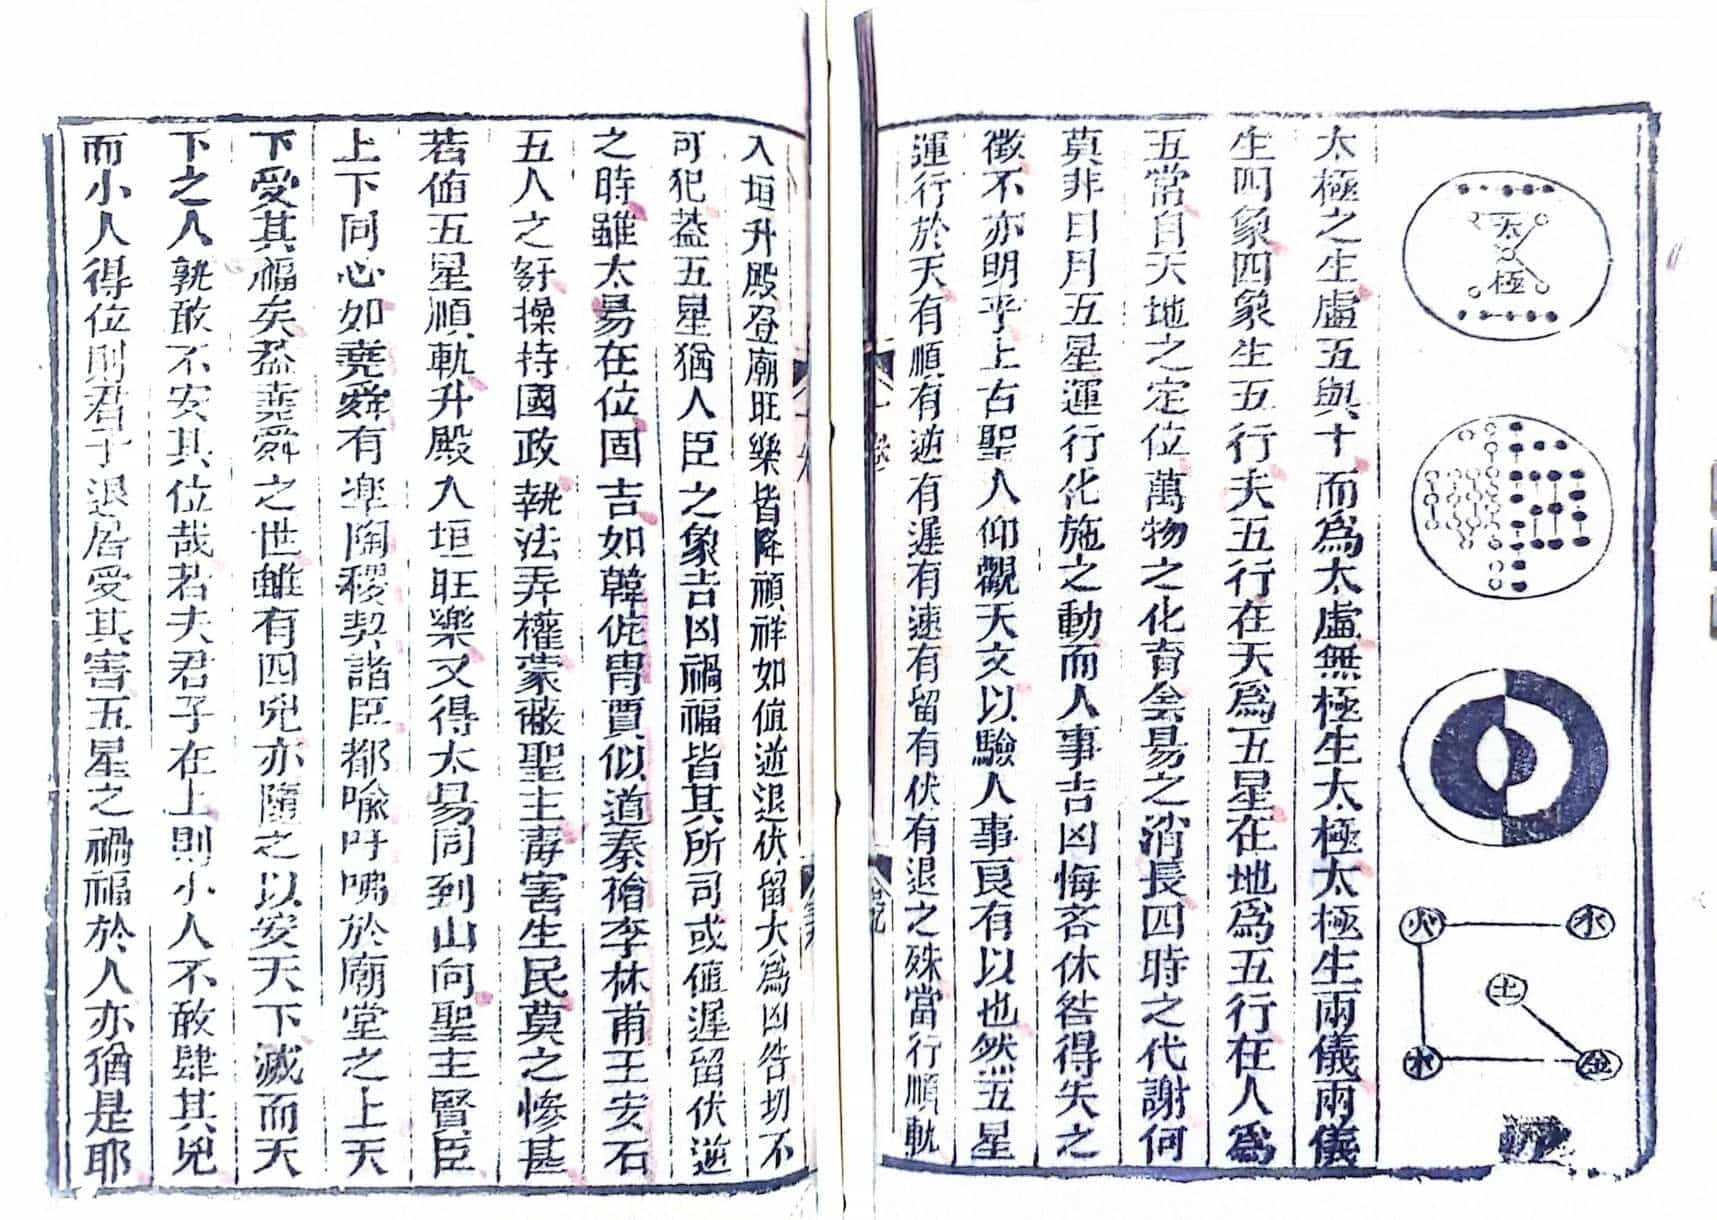 太極
火
水
土
木
金
太極之生虛五與十而爲太虛無極生太極太極生兩儀兩儀
生四象四象生五行夫五行在天爲五星在地爲五行在人爲
五常自天地之定位萬物之化育侌昜之消長四時之代謝何
莫非日月五星運行化施之動而人事吉凶悔吝休咎得失之
徵不亦明乎上古聖人仰觀天文以驗人事良有以也然五星
運行於天有順有逆有遲有速有留有伏有退之殊當行順軌
入垣升殿登廟旺樂皆降禎祥如值逆退伏留大爲凶咎切不
可犯葢五星猶人臣之象吉凶禍福皆其所司或值遲留伏逆
之時雖太昜在位固吉如韓侂冑賈似道秦檜李林甫王安石
五人之奸操持國政執法弄權蒙蔽聖主毒害生民莫之慘甚
若値五星順軌升殿入垣旺樂又得太昜同到山向聖主賢臣
上下同心如堯舜有臯陶稷契諸臣都喩吁咈於廟堂之上天
下受其福矣葢堯舜之世雖有四兇亦隨之以安天下滅而天
下之人孰敢不安其位哉若夫君子在上則小人不敢肆其兇
而小人得位則君子退居受其害五星之禍福於人亦猶是耶